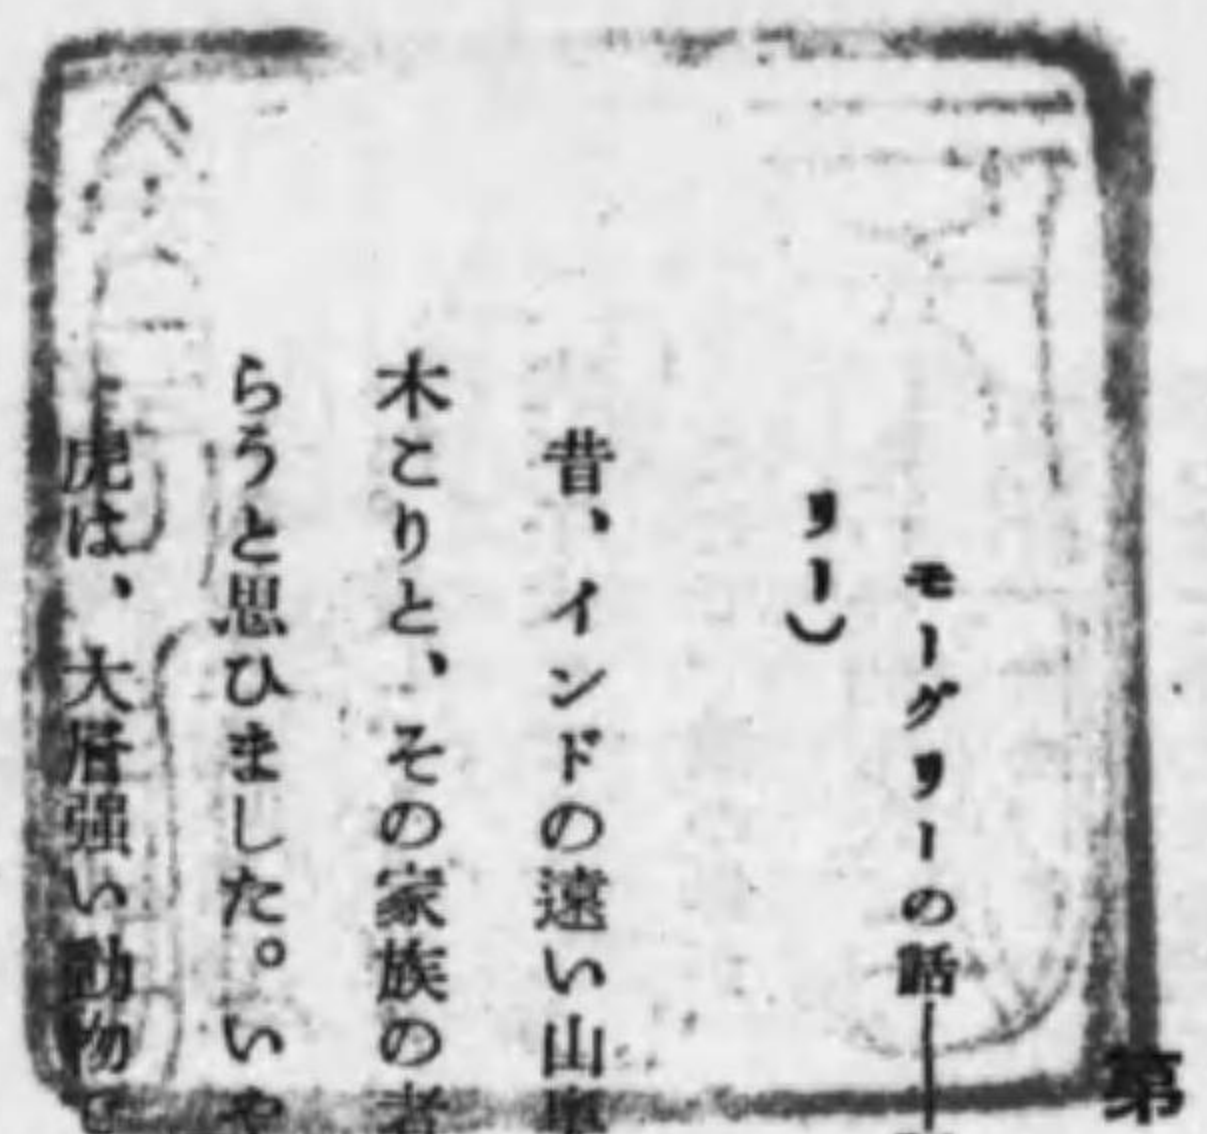 第
モーグリーの話―
リー)
昔、インドの遠い山奥
木こりと、その家族の者
らうと思ひました。いや
虎は、大層强い動物で